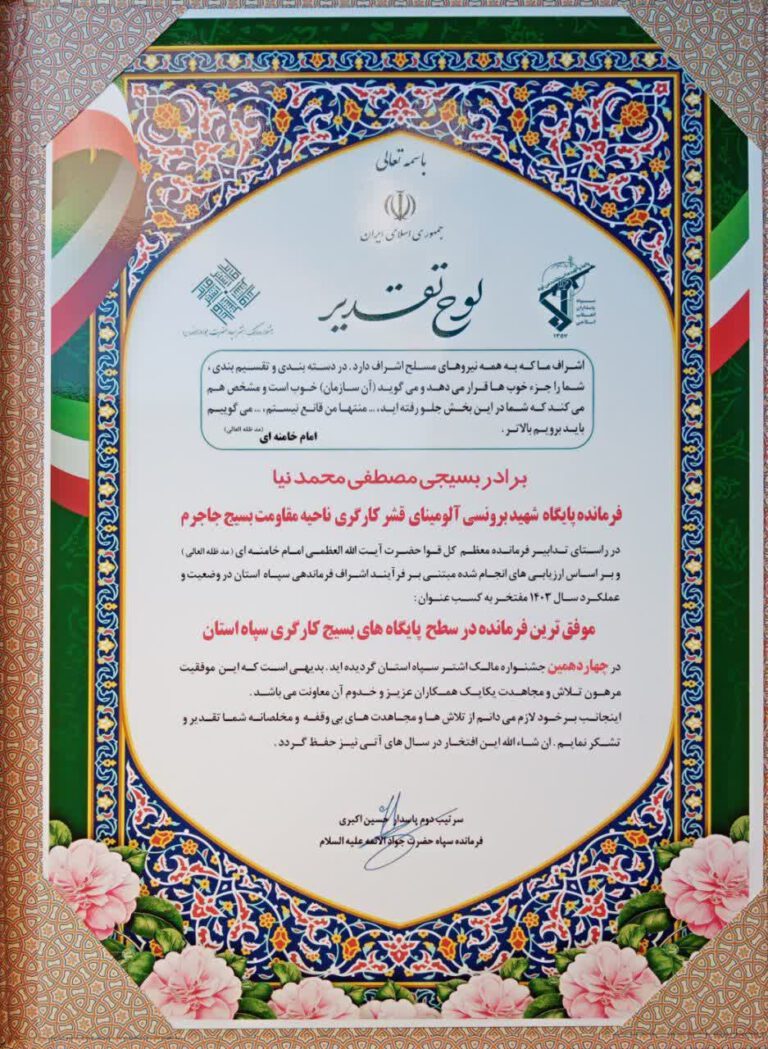 باسمه تعالی
جمهوری اسلامی ایران
لوح تقدیر
سپاه
پاسداران
انقلاب
اسلامی
۱۳۵۷
اشراف ما که به همه نیروهای مسلح اشراف دارد. در دسته بندی و تقسیم بندی،
شما را جزء خوب ها قرار می دهد و می گوید (آن سازمان) خوب است و مشخص هم
می کند که شما در این بخش جلو رفته اید،... منتها من قانع نیستم، ... می گوییم
باید برویم بالاتر.
امام خامنه ای (مد ظله العالی)
برادر بسیجی مصطفی محمد نیا
فرمانده پایگاه شهید برونسی آلومینای قشر کارگری ناحیه مقاومت بسیج جاجرم
در راستای تدابیر فرمانده معظم کل قوا حضرت آیت الله العظمی امام خامنه ای (مد ظله العالی)
و بر اساس ارزیابی های انجام شده مبتنی بر فرآیند اشراف فرماندهی سپاه استان در وضعیت و
عملکرد سال ۱۴۰۳ مفتخر به کسب عنوان:
موفق ترین فرمانده در سطح پایگاه های بسیج کارگری سپاه استان
در چهاردهمین جشنواره مالک اشتر سپاه استان گردیده اید. بدیهی است که این موفقیت
مرهون تلاش و مجاهدت یکایک همکاران عزیز و خدوم آن معاونت می باشد.
اینجانب بر خود لازم می دانم از تلاش ها و مجاهدت های بی وقفه و مخلصانه شما تقدیر و
تشکر نمایم. ان شاء الله این افتخار در سال های آتی نیز حفظ گردد.
سرتیپ دوم پاسدار حسین اکبری
فرمانده سپاه حضرت جواد الائمه علیه السلام